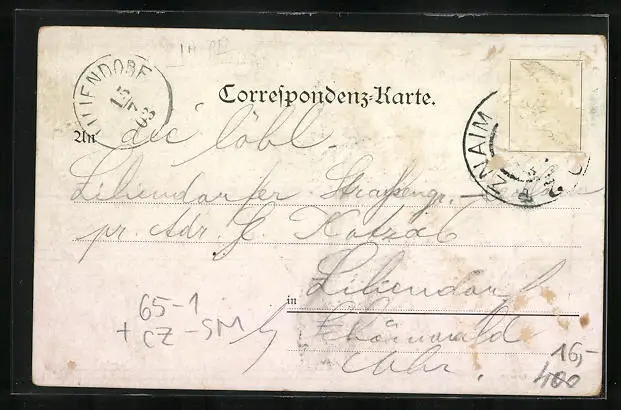 LILIENDORF
15 7 03
Correspondenz-Karte.
ZNAIM
An die löbl.
Liliendorfer Strassengr.
pr. Adr. H.
in Liliendorf
Schönwald
Mähr.
65-1
+ CZ-SM
16,-
400